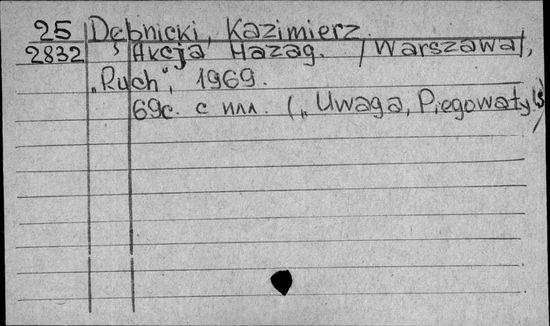 25 Dębnicki, Kazimierz.
2832 Akcja Hazag. /Warszawa/,
„Ruch", 1969.
69c. с илл. („Uwaga, Piegowaty!")